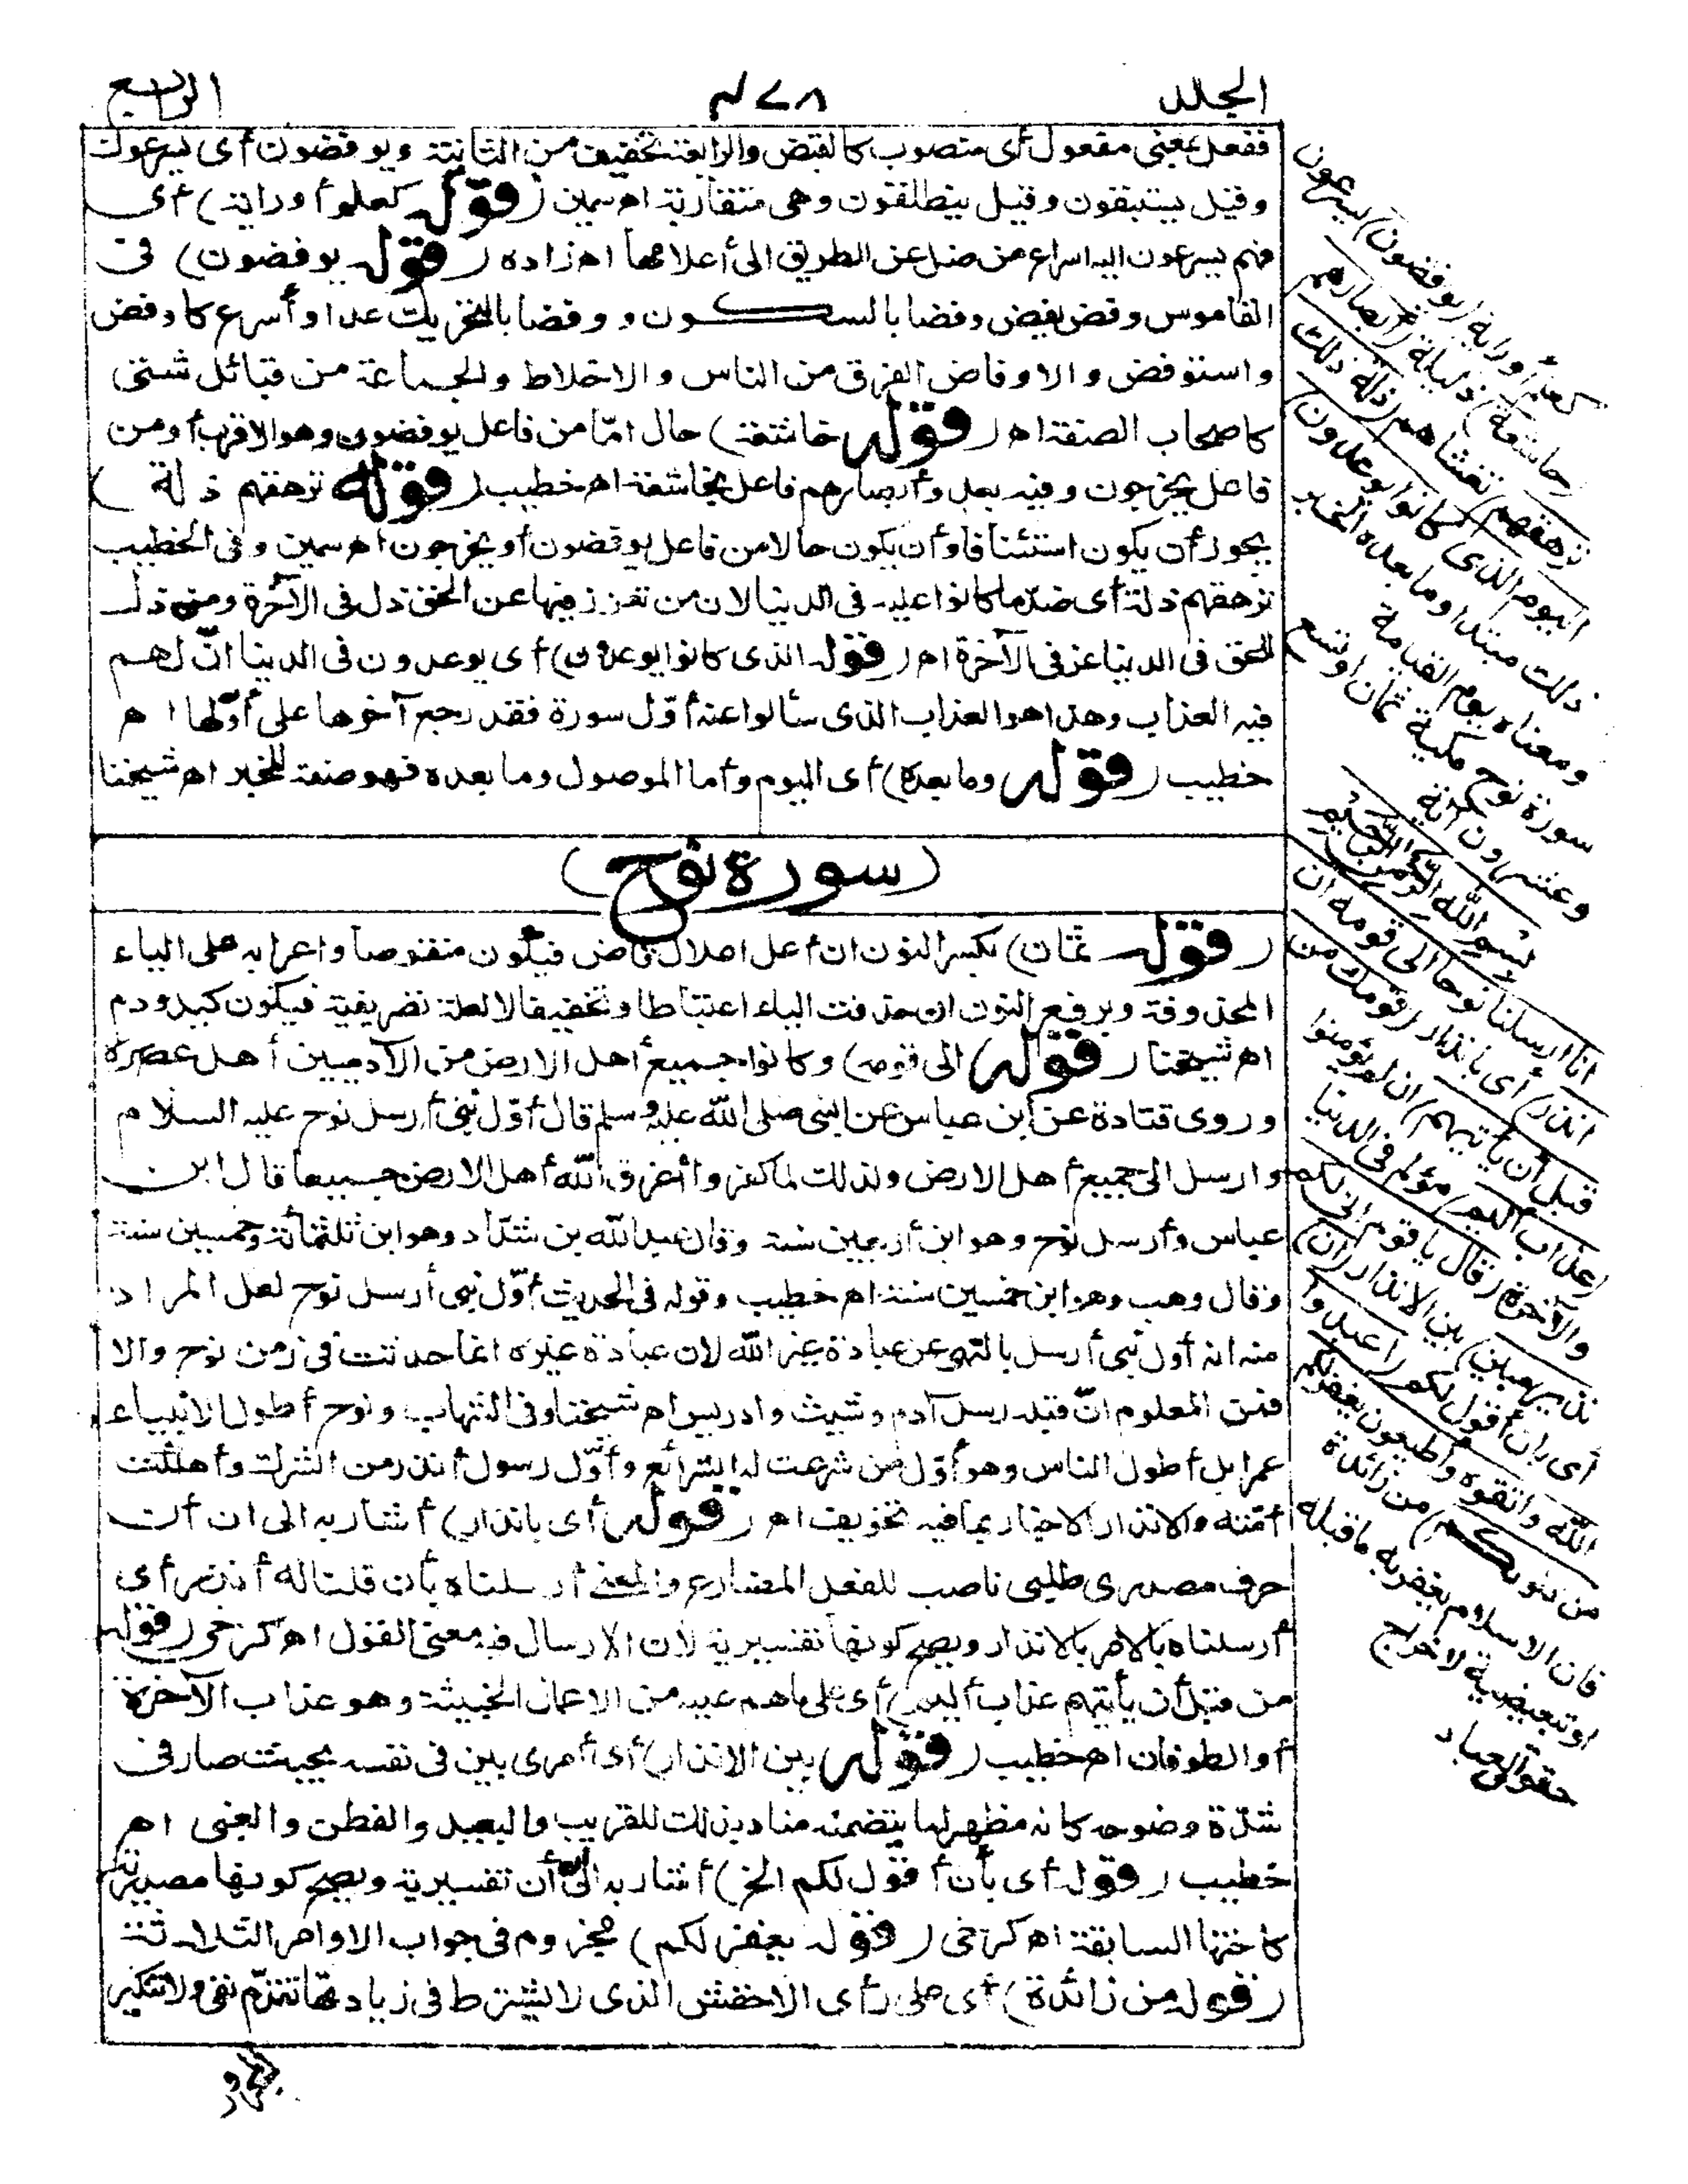 الجلد
٤٧٨
الرابع
ففعل بمعنى مفعول أى منصوب كالقبض والرابعة تخفيف من الثانية ويوفضون أى يسرعون
وقيل يستبقون وقيل ينطلقون وهى متقاربة اه سمين (قوله كعلم أو راية) أى
فهم يسرعون اليه اسراع من ضل عن الطريق الى أعلامها اه زاده (قوله يوفضون) فى
القاموس وفض يفض وفضا بالسكون ووفضا بالتحريك عدا وأسرع كاوفض
واستوفض والاوفاض الفرق من الناس والاخلاط والجماعة من قبائل شتى
كاصحاب الصفة اه (قوله خاشعة) حال امّا من فاعل يوفضون وهو الاقرب أو من
فاعل يخرجون وفيه بعد وأبصارهم فاعل بخاشعة اه خطيب (قوله ترهقهم ذلة)
يجوز أن يكون استئنافا وأن يكون حالا من فاعل يوفضون أو يخرجون اه سمين وفى الخطيب
ترهقهم ذلة أى ضدّ ما كانوا عليه فى الدنيا لان من تعزز فيها عن الحق ذل فى الآخرة ومن ذل
للحق فى الدنيا عز فى الآخرة اه (قوله الذى كانوا يوعدون) أى يوعدون فى الدنيا انّ لهم
فيه العذاب وهذا هو العذاب الذى سألوا عنه أوّل سورة فقد رجع آخرها على أوّلها اه
خطيب (قوله وما بعده) أى اليوم وأما الموصول وما بعده فهو صفة للخبر اه شيخنا
(سورة نوح)
(قوله ثمان) بكسر النون ان أعل اعلال قاض فيكون منقوصا واعرابه على الياء
المحذوفة وبرفع النون ان حذفت الياء اعتباطا وتخفيفا لا لعلة تصريفية فيكون كيد ودم
اه شيخنا (قوله الى قومه) وكانوا جميع أهل الارض من الآدميين أهل عصره
وروى قتادة عن ابن عباس عن النبى صلى الله عليه وسلم قال أوّل نبى أرسل نوح عليه السلام
وارسل الى جميع أهل الارض ولذلك لما كفروا أغرق الله أهل الارض جميعا قال ابن
عباس وأرسل نوح وهو ابن أربعين سنة وقال عبد الله بن شدّاد وهو ابن ثلثمائة وخمسين سنة
وقال وهب وهو ابن خمسين سنة اه خطيب وقوله فى الحديث أوّل نبى أرسل نوح لعل المراد
منه انه أول نبى أرسل بالنهى عن عبادة غير الله لان عبادة غيره انما حدثت فى زمن نوح والا
فمن المعلوم انّ قبله رسل آدم وشيث وادريس اه شيخنا وفى الشهاب ونوح أطول الانبياء
عمرا بل أطول الناس وهو أوّل من شرعت له الشرائع وأوّل رسول أنذر من الشرك وأهلكت
أمّته والانذار الاخبار بما فيه تخويف اه (قوله أى بانذار) أشار به الى ان أن
حرف مصدرى طلبى ناصب للفعل المضارع والمعنى أرسلناه بأن قلنا له أنذر أى
أرسلناه بالامر بالانذار ويصح كونها تفسيرية لأن الارسال فيه معنى القول اه كرخى (قوله
من قبل أن يأتيهم عذاب أليم) أى على ما هم عليه من الاعمال الخبيثة وهو عذاب الآخرة
أو الطوفان اه خطيب (قوله بين الانذار) أى أمرى بين فى نفسه بحيث صار فى
شدّة وضوحه كانه مظهر لما يتضمنه مناد بذلك للقريب والبعيد والفطن والغبى اه
خطيب (قوله أى بأن أقول لكم الخ) أشار به الى أن أن تفسيرية ويصح كونها مصدرية
كاختها السابقة اه كرخى (قوله يغفر لكم) مجزوم فى جواب الاوامر الثلاثة
(قوله من زائدة) أى على رأى الاخفش الذى لا يشترط فى زيادتها تقدّم نفى ولا تنكير
كعلم أو راية (يوفضون) يسرعون
(خاشعة) ذليلة (أبصارهم
ترهقهم) تغشاهم (ذلة ذلك
اليوم الذى كانوا يوعدون)
ذلك مبتدا وما بعده الخبر
ومعناه يوم القيامة
سورة نوح مكية ثمان أو تسع
وعشرون آية
بسم الله الرحمن الرحيم
انا أرسلنا نوحا الى قومه ان
انذر) أى بانذار (قومك من
قبل أن يأتيهم) ان لم يؤمنوا
(عذاب أليم) مؤلم فى الدنيا
والآخرة (قال يا قوم انى لكم
نذير مبين) بين الانذار (ان)
أى بان أقول لكم (اعبدوا
الله واتقوه وأطيعون يغفر لكم
من ذنوبكم) من زائدة
فان الاسلام يغفر به ما قبله
او تبعيضية لاخراج
حقوق العباد